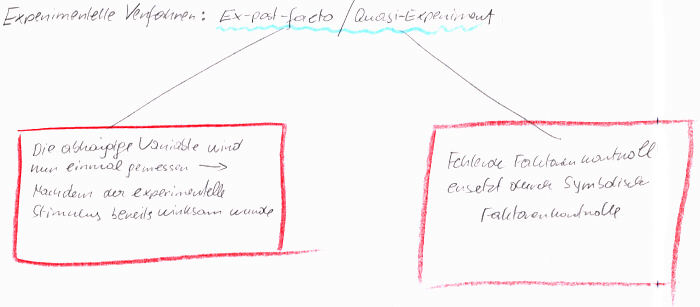 Experimentelle Verfahren: Ex-post-facto / Quasi-Experiment
Die abhängige Variable wird
nur einmal gemessen →
Nachdem der experimentelle
Stimulus bereits wirksam wurde
Fehlende Faktorenkontroll
ersetzt durch Symbolische
Faktorenkontrolle